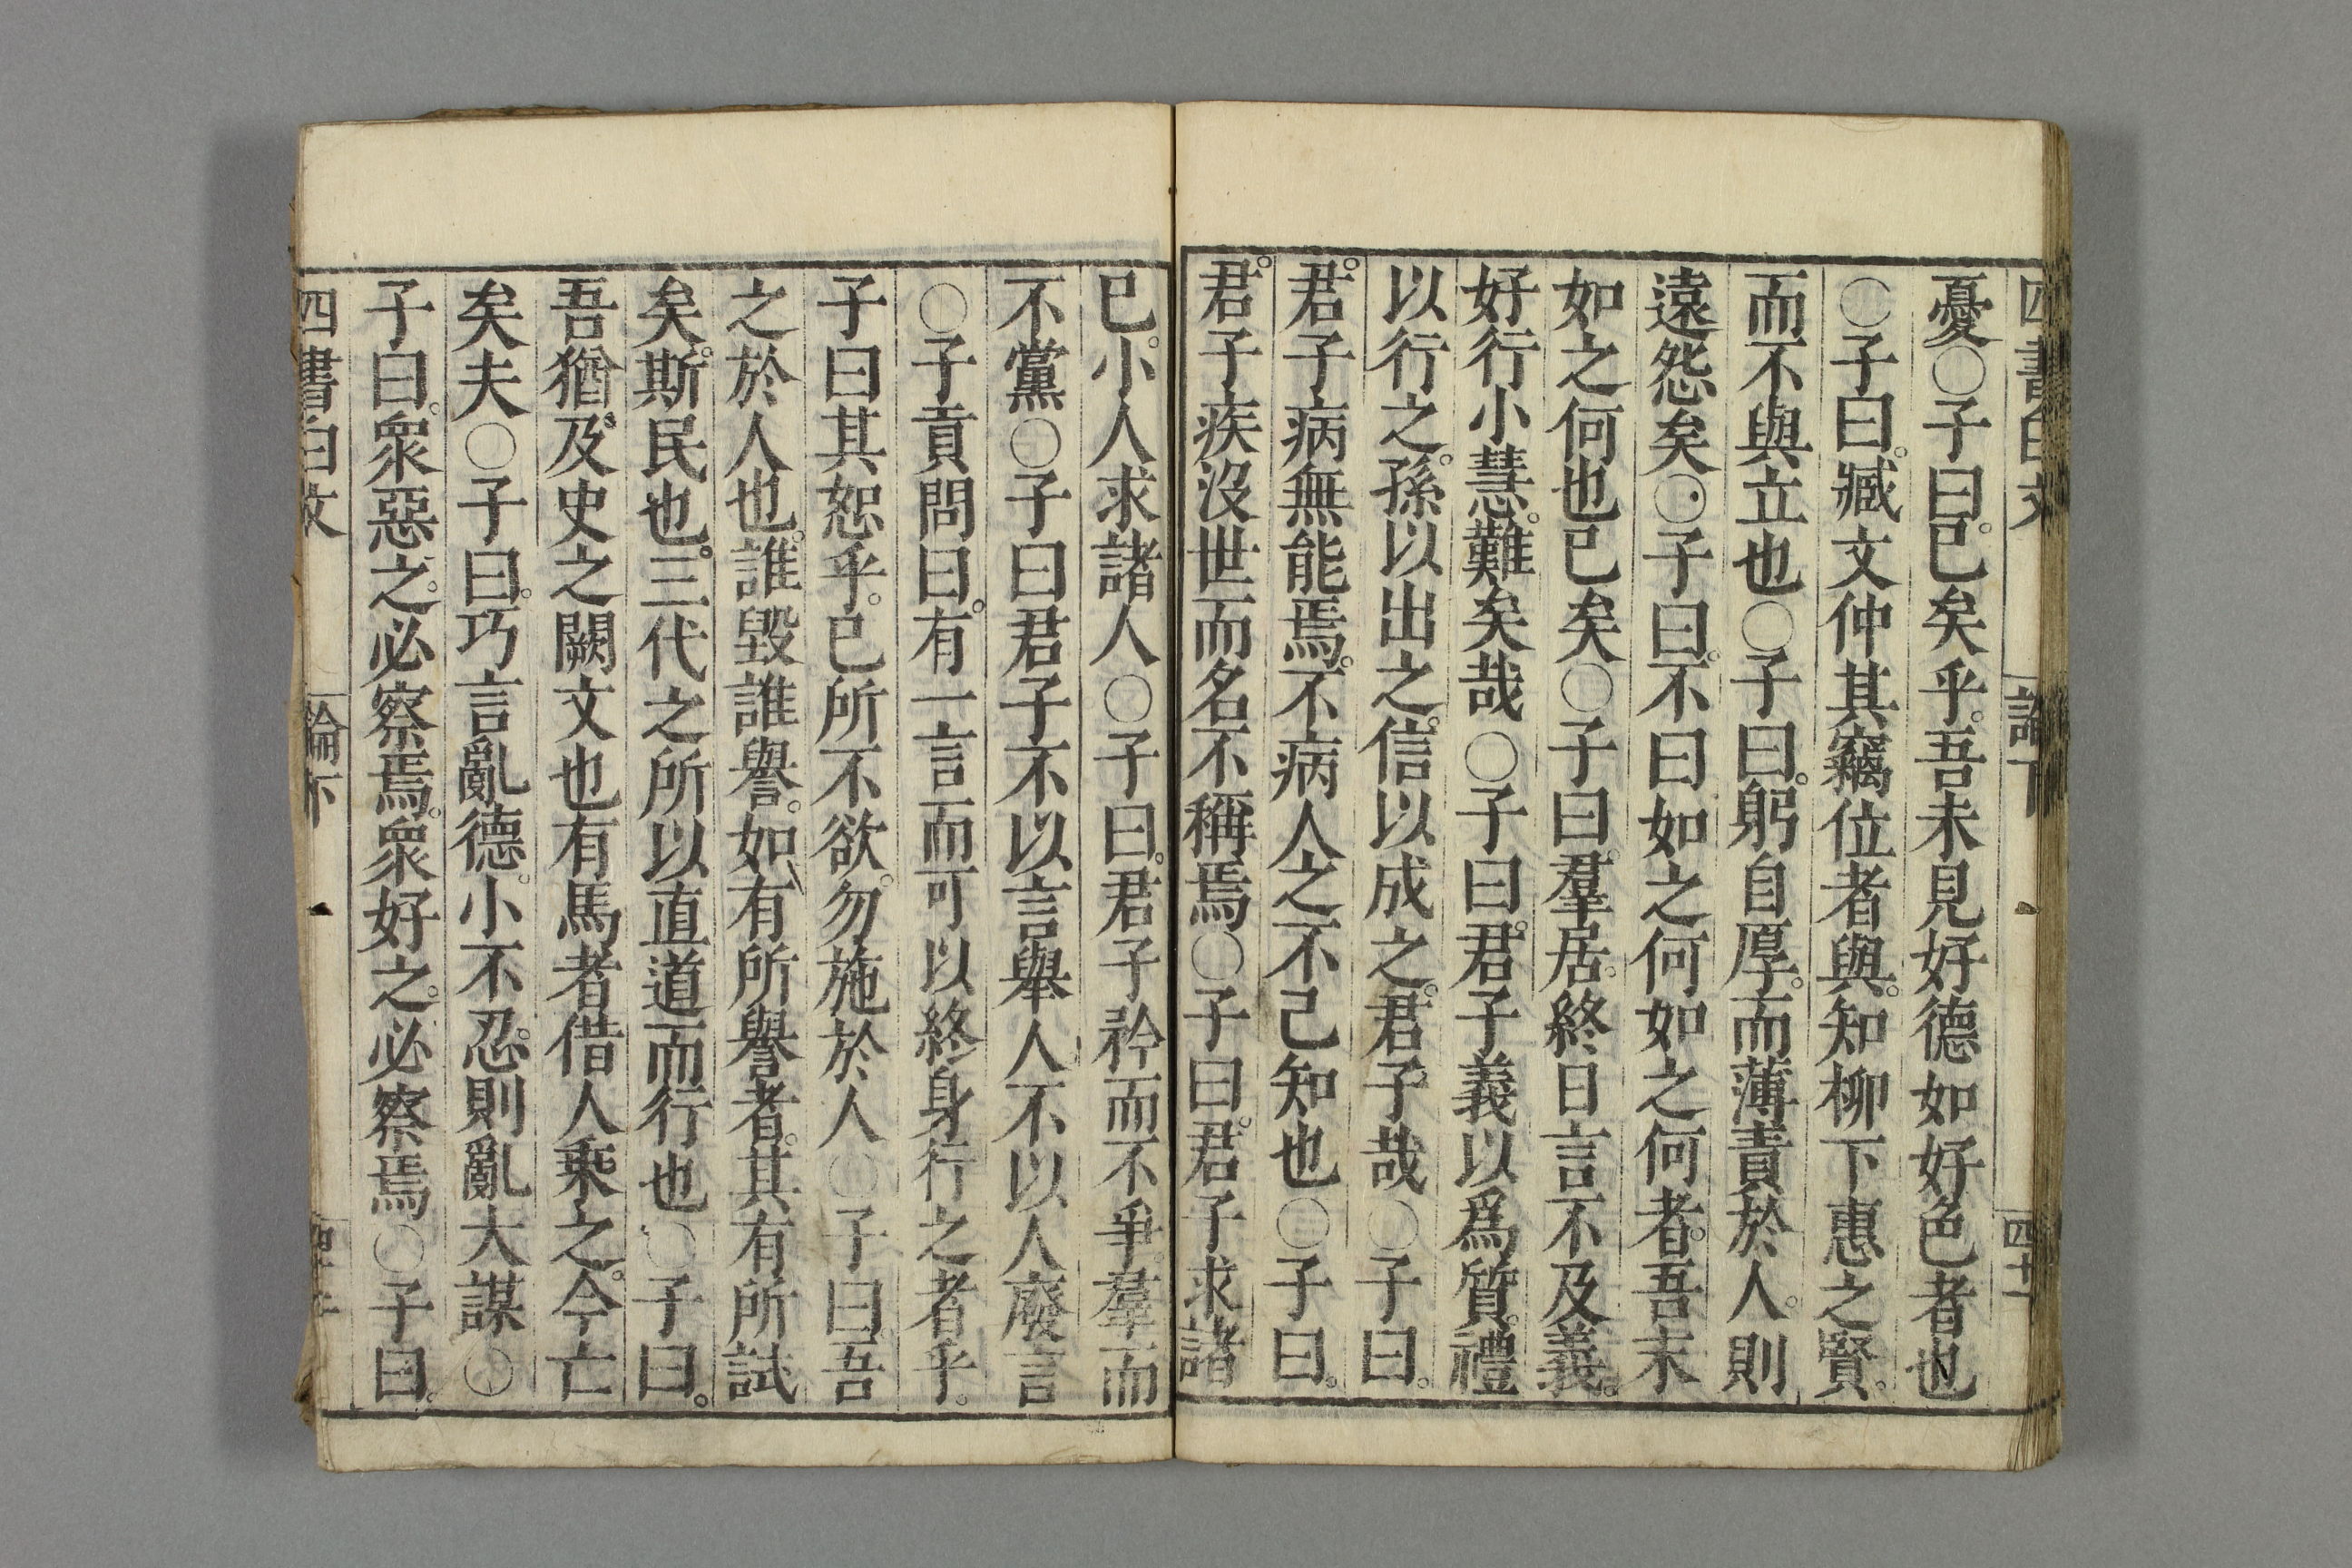 四書白文 論下 四十一
憂○子曰。已矣乎。吾未見好德如好色者也
○子曰。臧文仲其竊位者與。知柳下惠之賢。
而不與立也○子曰。躬自厚。而薄責於人。則
遠怨矣○子曰。不曰如之何如之何者。吾末
如之何也已矣○子曰。羣居。終日言不及義。
好行小慧。難矣哉○子曰。君子義以爲質。禮
以行之。孫以出之。信以成之。君子哉○子曰。
君子病無能焉。不病人之不己知也○子曰。
君子疾沒世而名不稱焉○子曰。君子求諸
已。小人求諸人○子曰。君子矜而不爭。羣而
不黨○子曰君子不以言舉人。不以人廢言
○子貢問曰。有一言而可以終身行之者乎。
子曰其恕乎。已所不欲。勿施於人○子曰吾
之於人也。誰毀誰譽。如有所譽者。其有所試
矣。斯民也。三代之所以直道而行也○子曰。
吾猶及史之闕文也有馬者借人乘之。今亡
矣夫○子曰。巧言亂德。小不忍。則亂大謀○
子曰。衆惡之。必察焉。衆好之。必察焉○子曰。
四書白文 論下